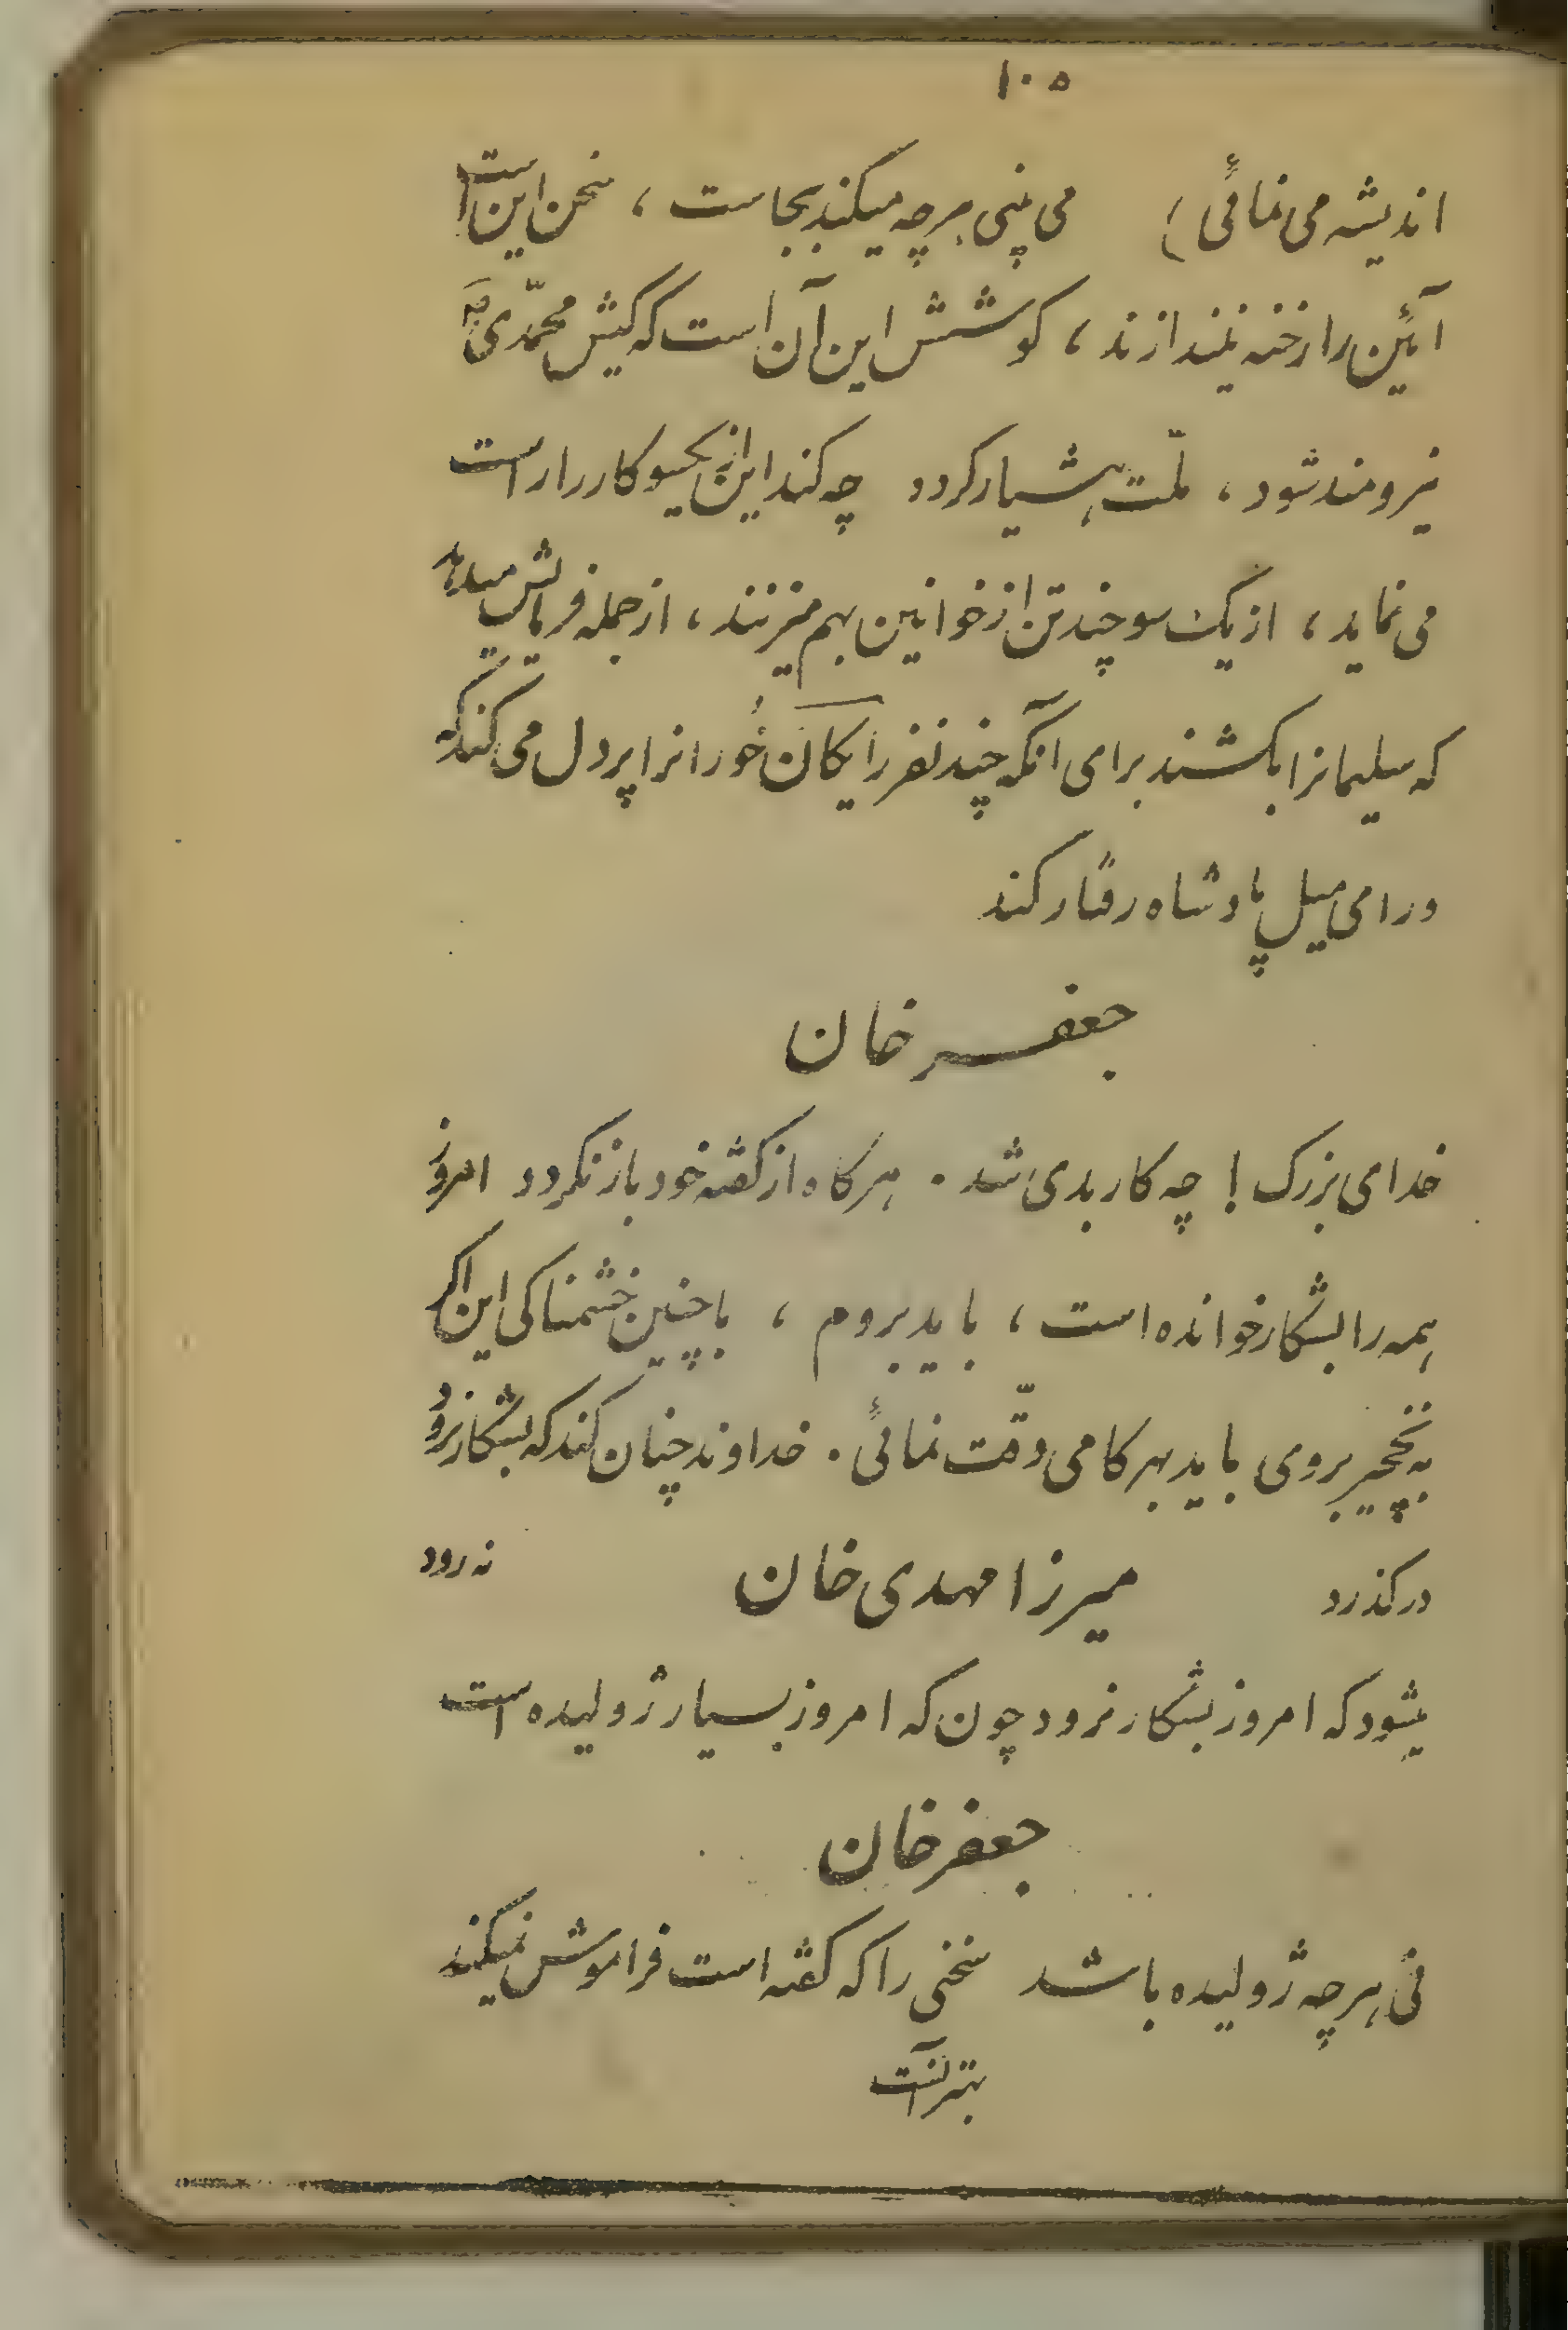 ۱۰۵
اندیشه می نمائی) می بینی هرچه میکند بجاست ، سخن این است
آئین را رخنه نیندازند ، کوشش این آن است که کیش محمّدی
نیرومند شود ، ملّت هشیار کردد چه کند این از یکسو کار را راست
می نماید ، از یک سو چند تن از خوانین بهم میزنند ، از جمله فرمایش میدهد
که سلیمانرا بکشند برای آنکه چند نفر رایکان خورانرا پردل می کند که
ورامی میل پادشاه رفتار کند
جعفر خان
خدای بزرک ! چه کار بدی شد . هرکاه از کفته خود باز نکردد امروز
همه را بشکار خوانده است ، باید بروم ، با چنین خشمناکی این اکر
به نخچیر بروی باید بهر کامی دقّت نمائی . خداوند چنان کند که بشکار نرود
درکذرد میرزا مهدی خان نه رود
میشود که امروز بشکار نرود چون که امروز بسیار ژولیده است
جعفر خان
نی هرچه ژولیده باشد سخنی را که کفته است فراموش نمیکند
بهتر آنست